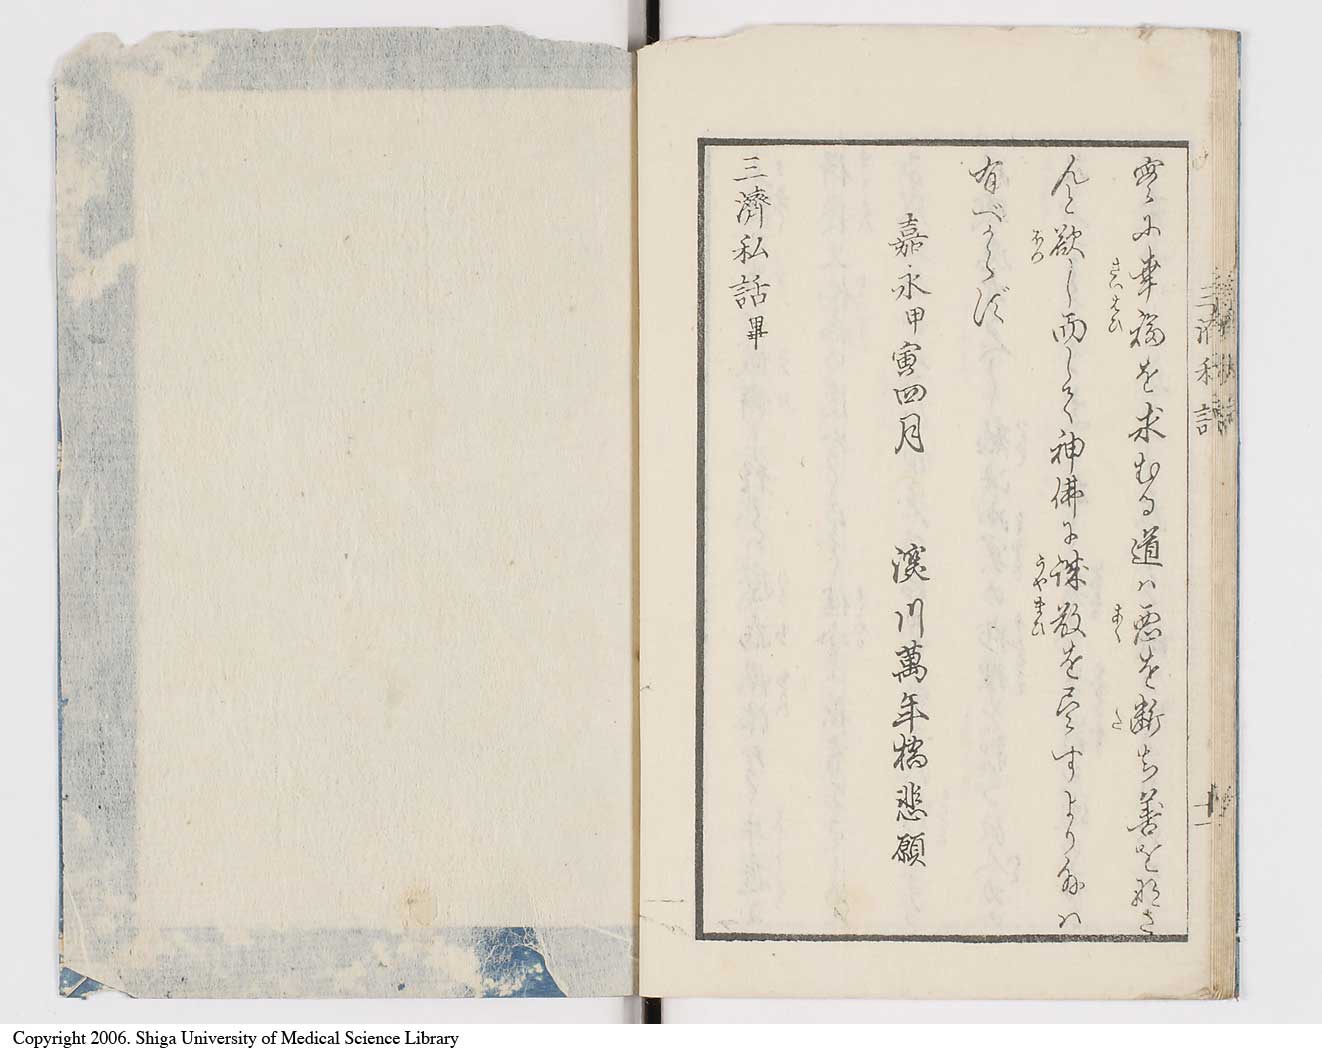 実に幸福を求むる道ハ悪を断ち善をなさ
さいはひ
あく
た
んと欲し而して神佛に誠敬を尽すより外ハ
ほつ
うやまひ
有べからず
嘉永甲寅四月　濱川萬年橋悲願
三濟私話畢
三濟私話
十一
Copyright 2006. Shiga University of Medical Science Library